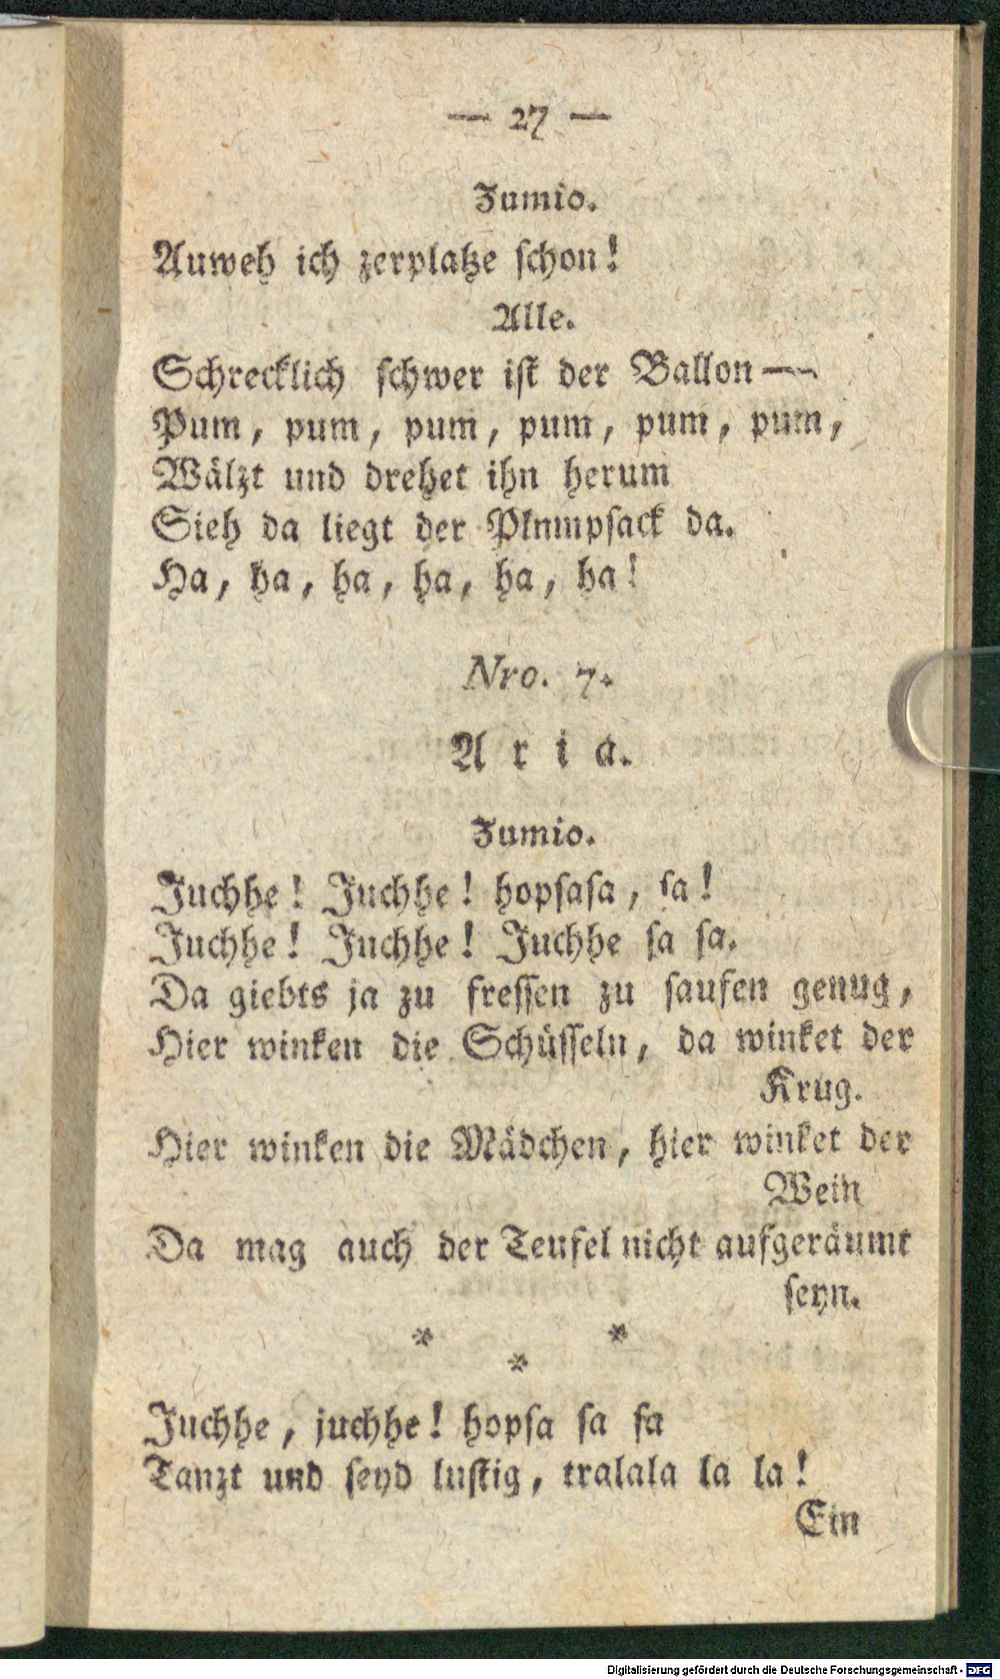 — 27 —
Zumio.
Auweh ich zerplatze schon!
Alle.
Schrecklich schwer ist der Ballon —
Pum, pum, pum, pum, pum, pum,
Wälzt und drehet ihn herum
Sieh da liegt der Plnmpsack da.
Ha, ha, ha, ha, ha, ha!
Nro. 7.
Aria.
Zumio.
Juchhe! Juchhe! hopsasa, sa!
Juchhe! Juchhe! Juchhe sa sa.
Da giebts ja zu fressen zu saufen genug,
Hier winken die Schüsseln, da winket der
Krug.
Hier winken die Mädchen, hier winket der
Wein
Da mag auch der Teufel nicht aufgeräumt
seyn.
* * *
Juchhe, juchhe! hopsa sa sa
Tanzt und seyd lustig, tralala la la!
Ein
Digitalisierung gefördert durch die Deutsche Forschungsgemeinschaft - DFG